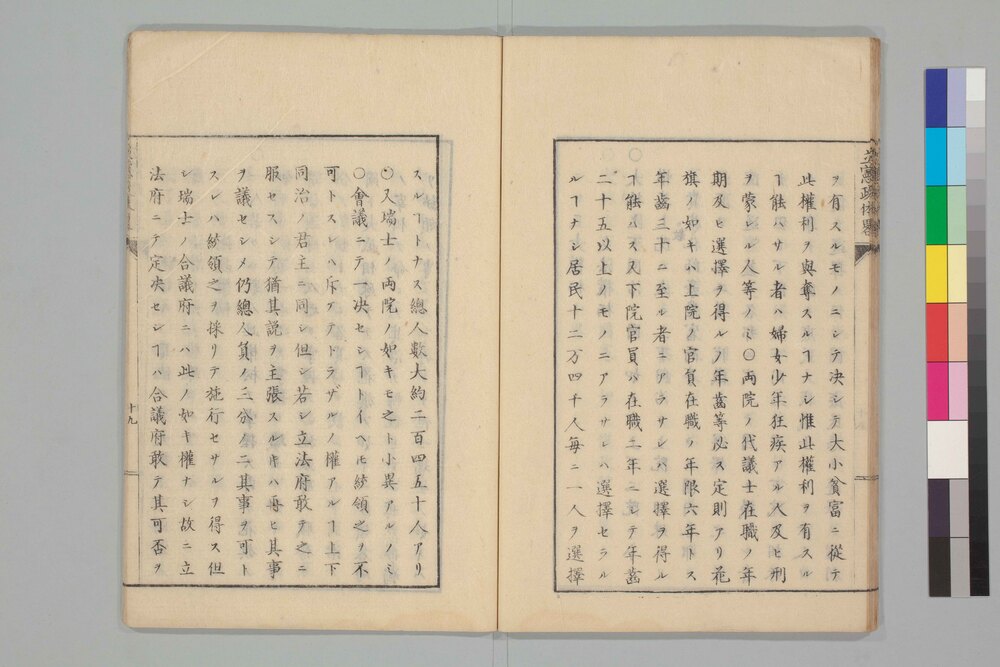 ヲ有スルモノニシテ決シテ大小貧富ニ從テ
此權利ヲ與奪スルヿナシ惟此權利ヲ有スル
ヿ能ハサル者ハ婦女少年狂疾アル人及ヒ刑
ヲ蒙シル人等ノミ〇兩院ノ代議士在職ノ年
期及ヒ選擇ヲ得ルノ年齒等必ス定則アリ花
旗ノ如キハ上院ノ官員在職ノ年限六年トス
年齒三十ニ至ル者ニアラサレハ選擇ヲ得ル
ヿ能ハス又下院官員ハ在職二年ニシテ年齒
二十五以上ノモノニアラサレハ選擇セラル
ルヿナシ居民十二万四千人每ニ一人ヲ選擇
スルヿトナス總人數大約二百四五十人アリ
〇又瑞士ノ兩院ノ如キモ之ト小異アルノミ
〇會議ニテ一决セシヿトイヘ𪜈統領之ヲ不
可トスレハ斥アテトラザルノ權アルヿ上下
同治ノ君主ニ同シ但シ若シ立法府敢テ之ニ
服セスシテ猶其説ヲ主張スル𪜈ハ再ヒ其事
ヲ議セシメ仍總人員ノ三分ノ二其事ヲ可ト
スレハ統領之ヲ採リテ施行セサルヲ得ス但
シ瑞士ノ合議府ニハ此ノ如キ權ナシ故ニ立
法府ニテ定决セシヿハ合議府敢テ其可否ヲ
十九